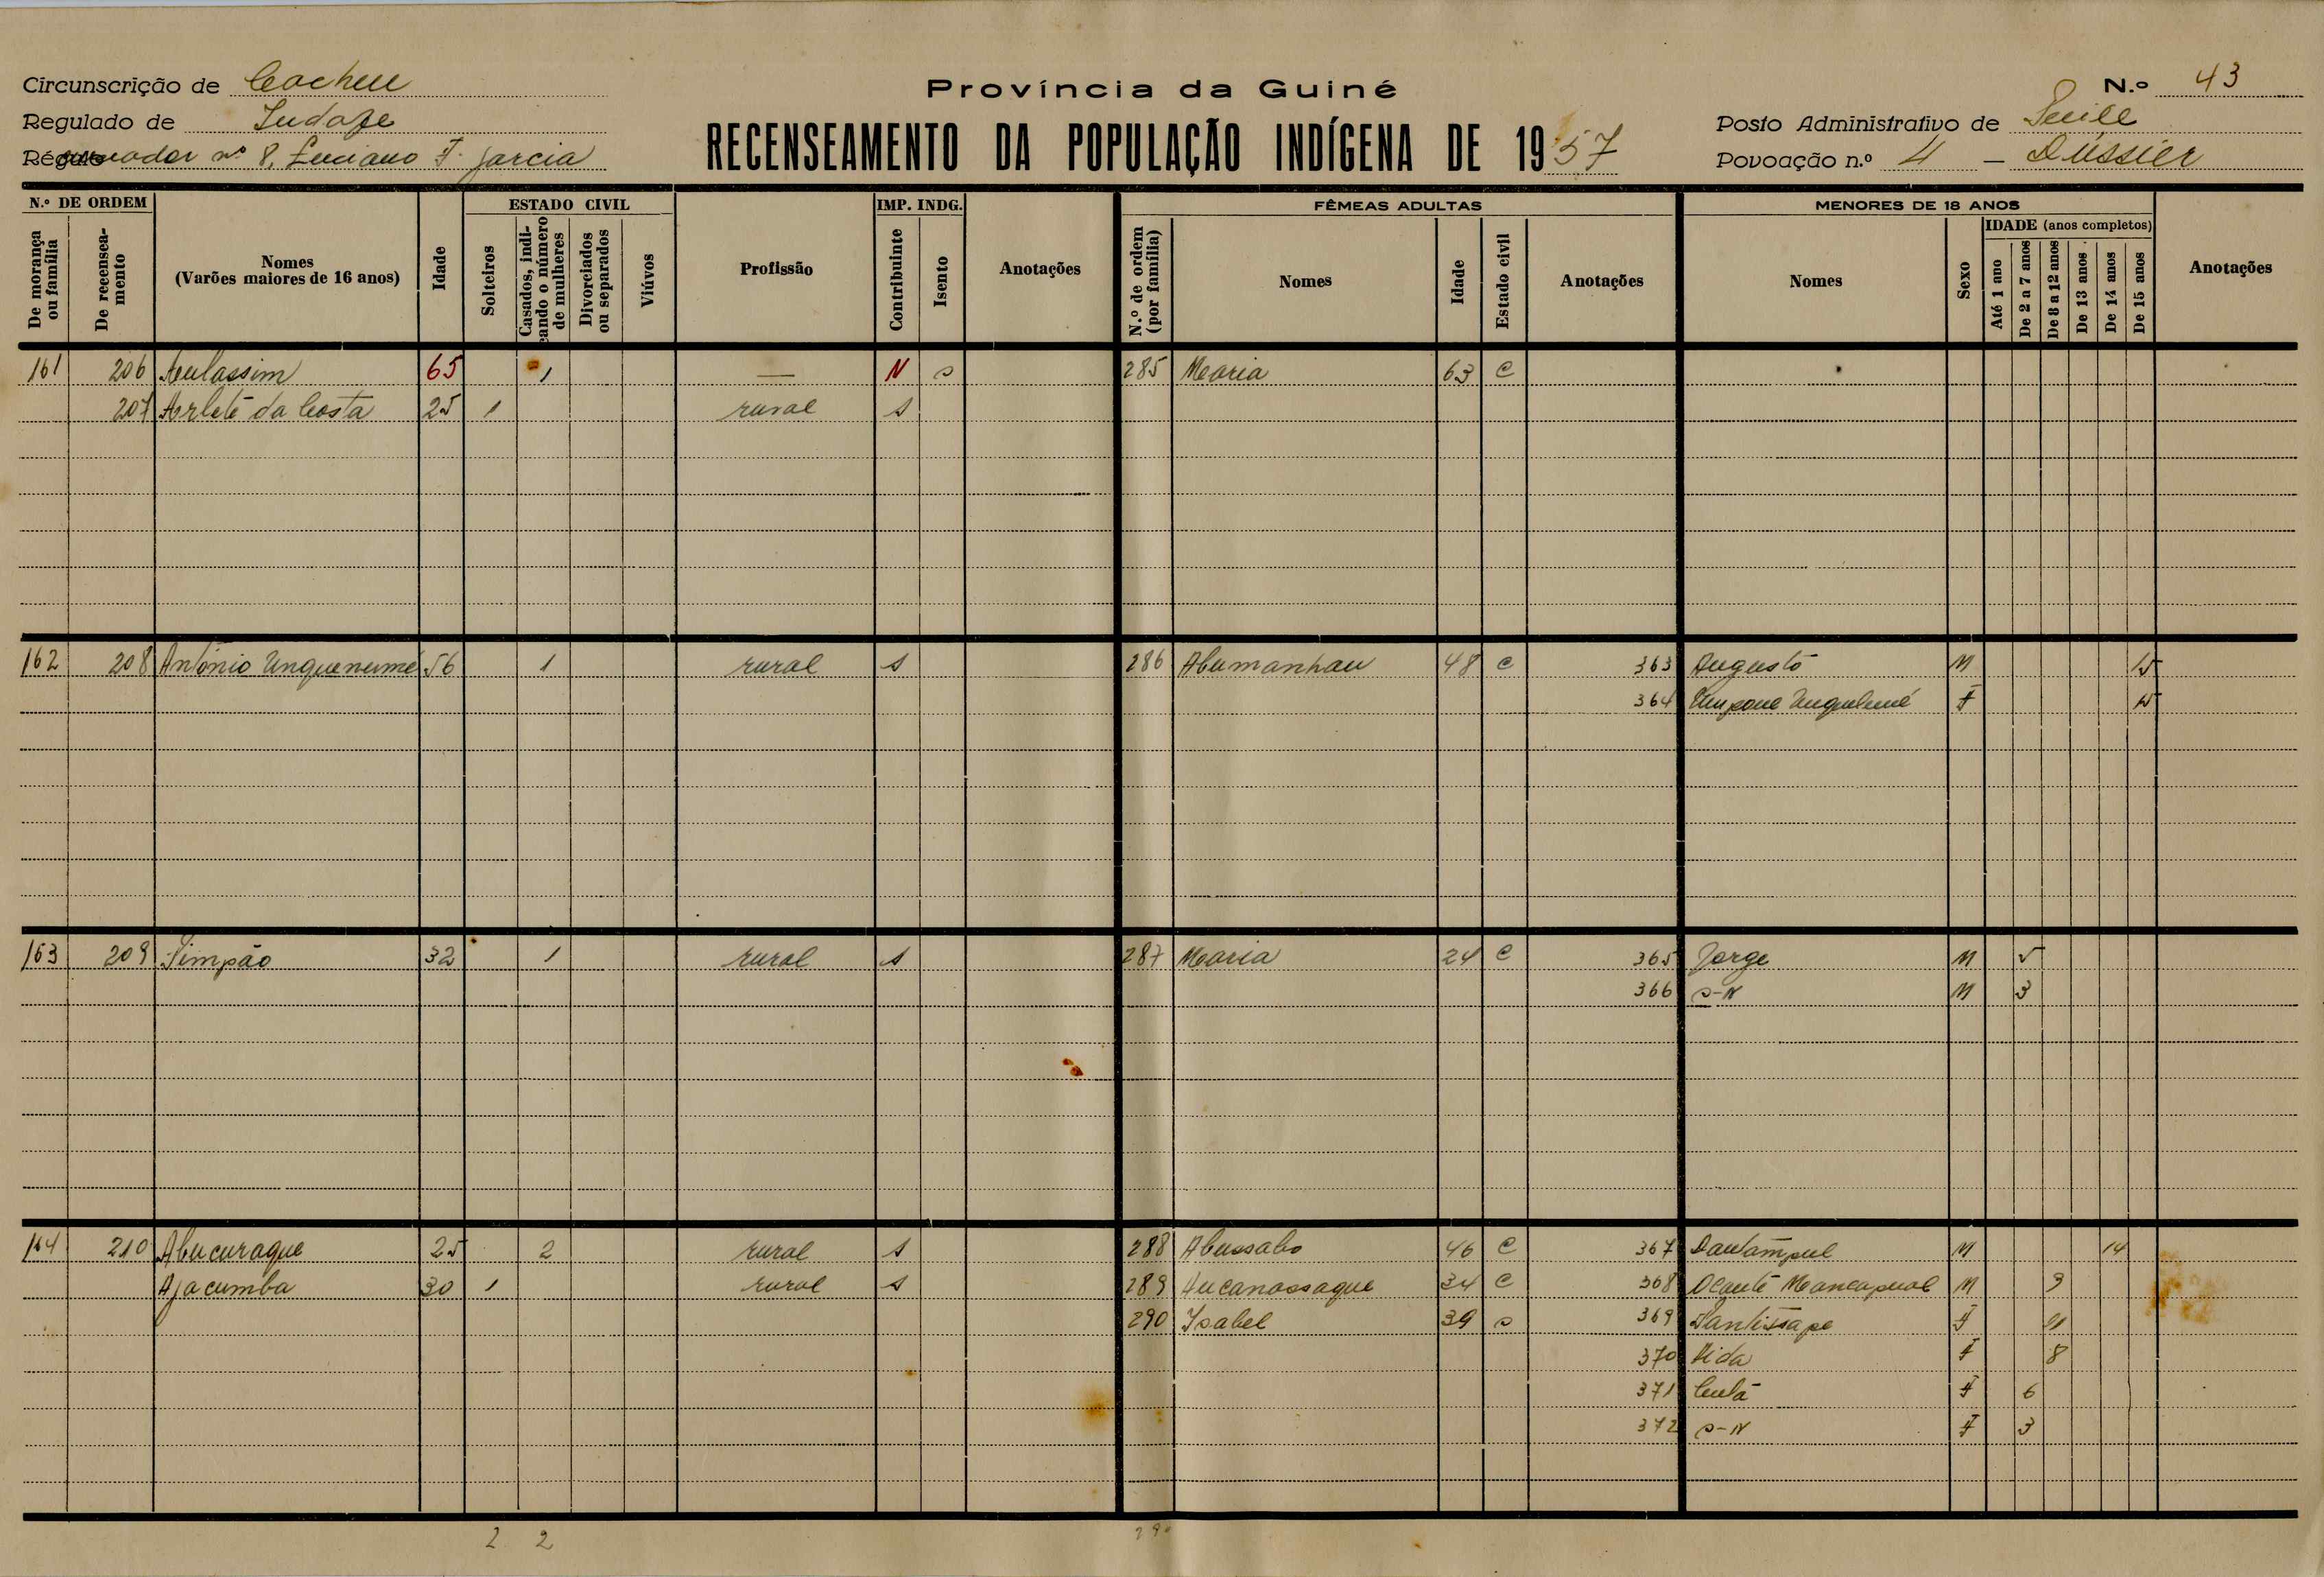 Circunscrição de Cacheu
Regulado de
Régulo nº 8, Luciano F. Garcia
Província da Guiné
RECENSEAMENTO DA POPULAÇÃO INDÍGENA DE 1957
N.º 43
Posto Administrativo de
Povoação n.º 4 –
N.º DE ORDEM
De morança ou família
De reensea-mento
Nomes
(Varões maiores de 16 anos)
Idade
ESTADO CIVIL
Solteiros
Casados, indi-cando o número de mulheres
Divorciados ou separados
Viúvos
Profissão
IMP. INDG.
Contribuinte
Isento
Anotações
FÊMEAS ADULTAS
N.º de ordem (por família)
Nomes
Idade
Estado civil
Anotações
MENORES DE 18 ANOS
Nomes
Sexo
IDADE (anos completos)
Até 1 ano
De 2 a 7 anos
De 8 a 12 anos
De 13 anos
De 14 anos
De 15 anos
Anotações
161 206 65 1 — N s 285 Maria 63 C
207 Arleté da Costa 25 1 rural s
162 208 António Unquenumé 56 1 rural s 286 Abumanhau 48 C 363 Augusto M 15
364 F 15
163 209 Simpão 32 1 rural s 287 Maria 24 C 365 Jorge M 5
366 s-N M 3
164 210 Abucuraque 25 2 rural s 288 Abussabo 46 C 367 M 14
Ajacumba 30 1 rural s 289 Aucanassaque 34 C 368 M 9
290 Isabel 39 s 369 F
370 F 8
371 F 6
372 s-N F 3
2 2 290